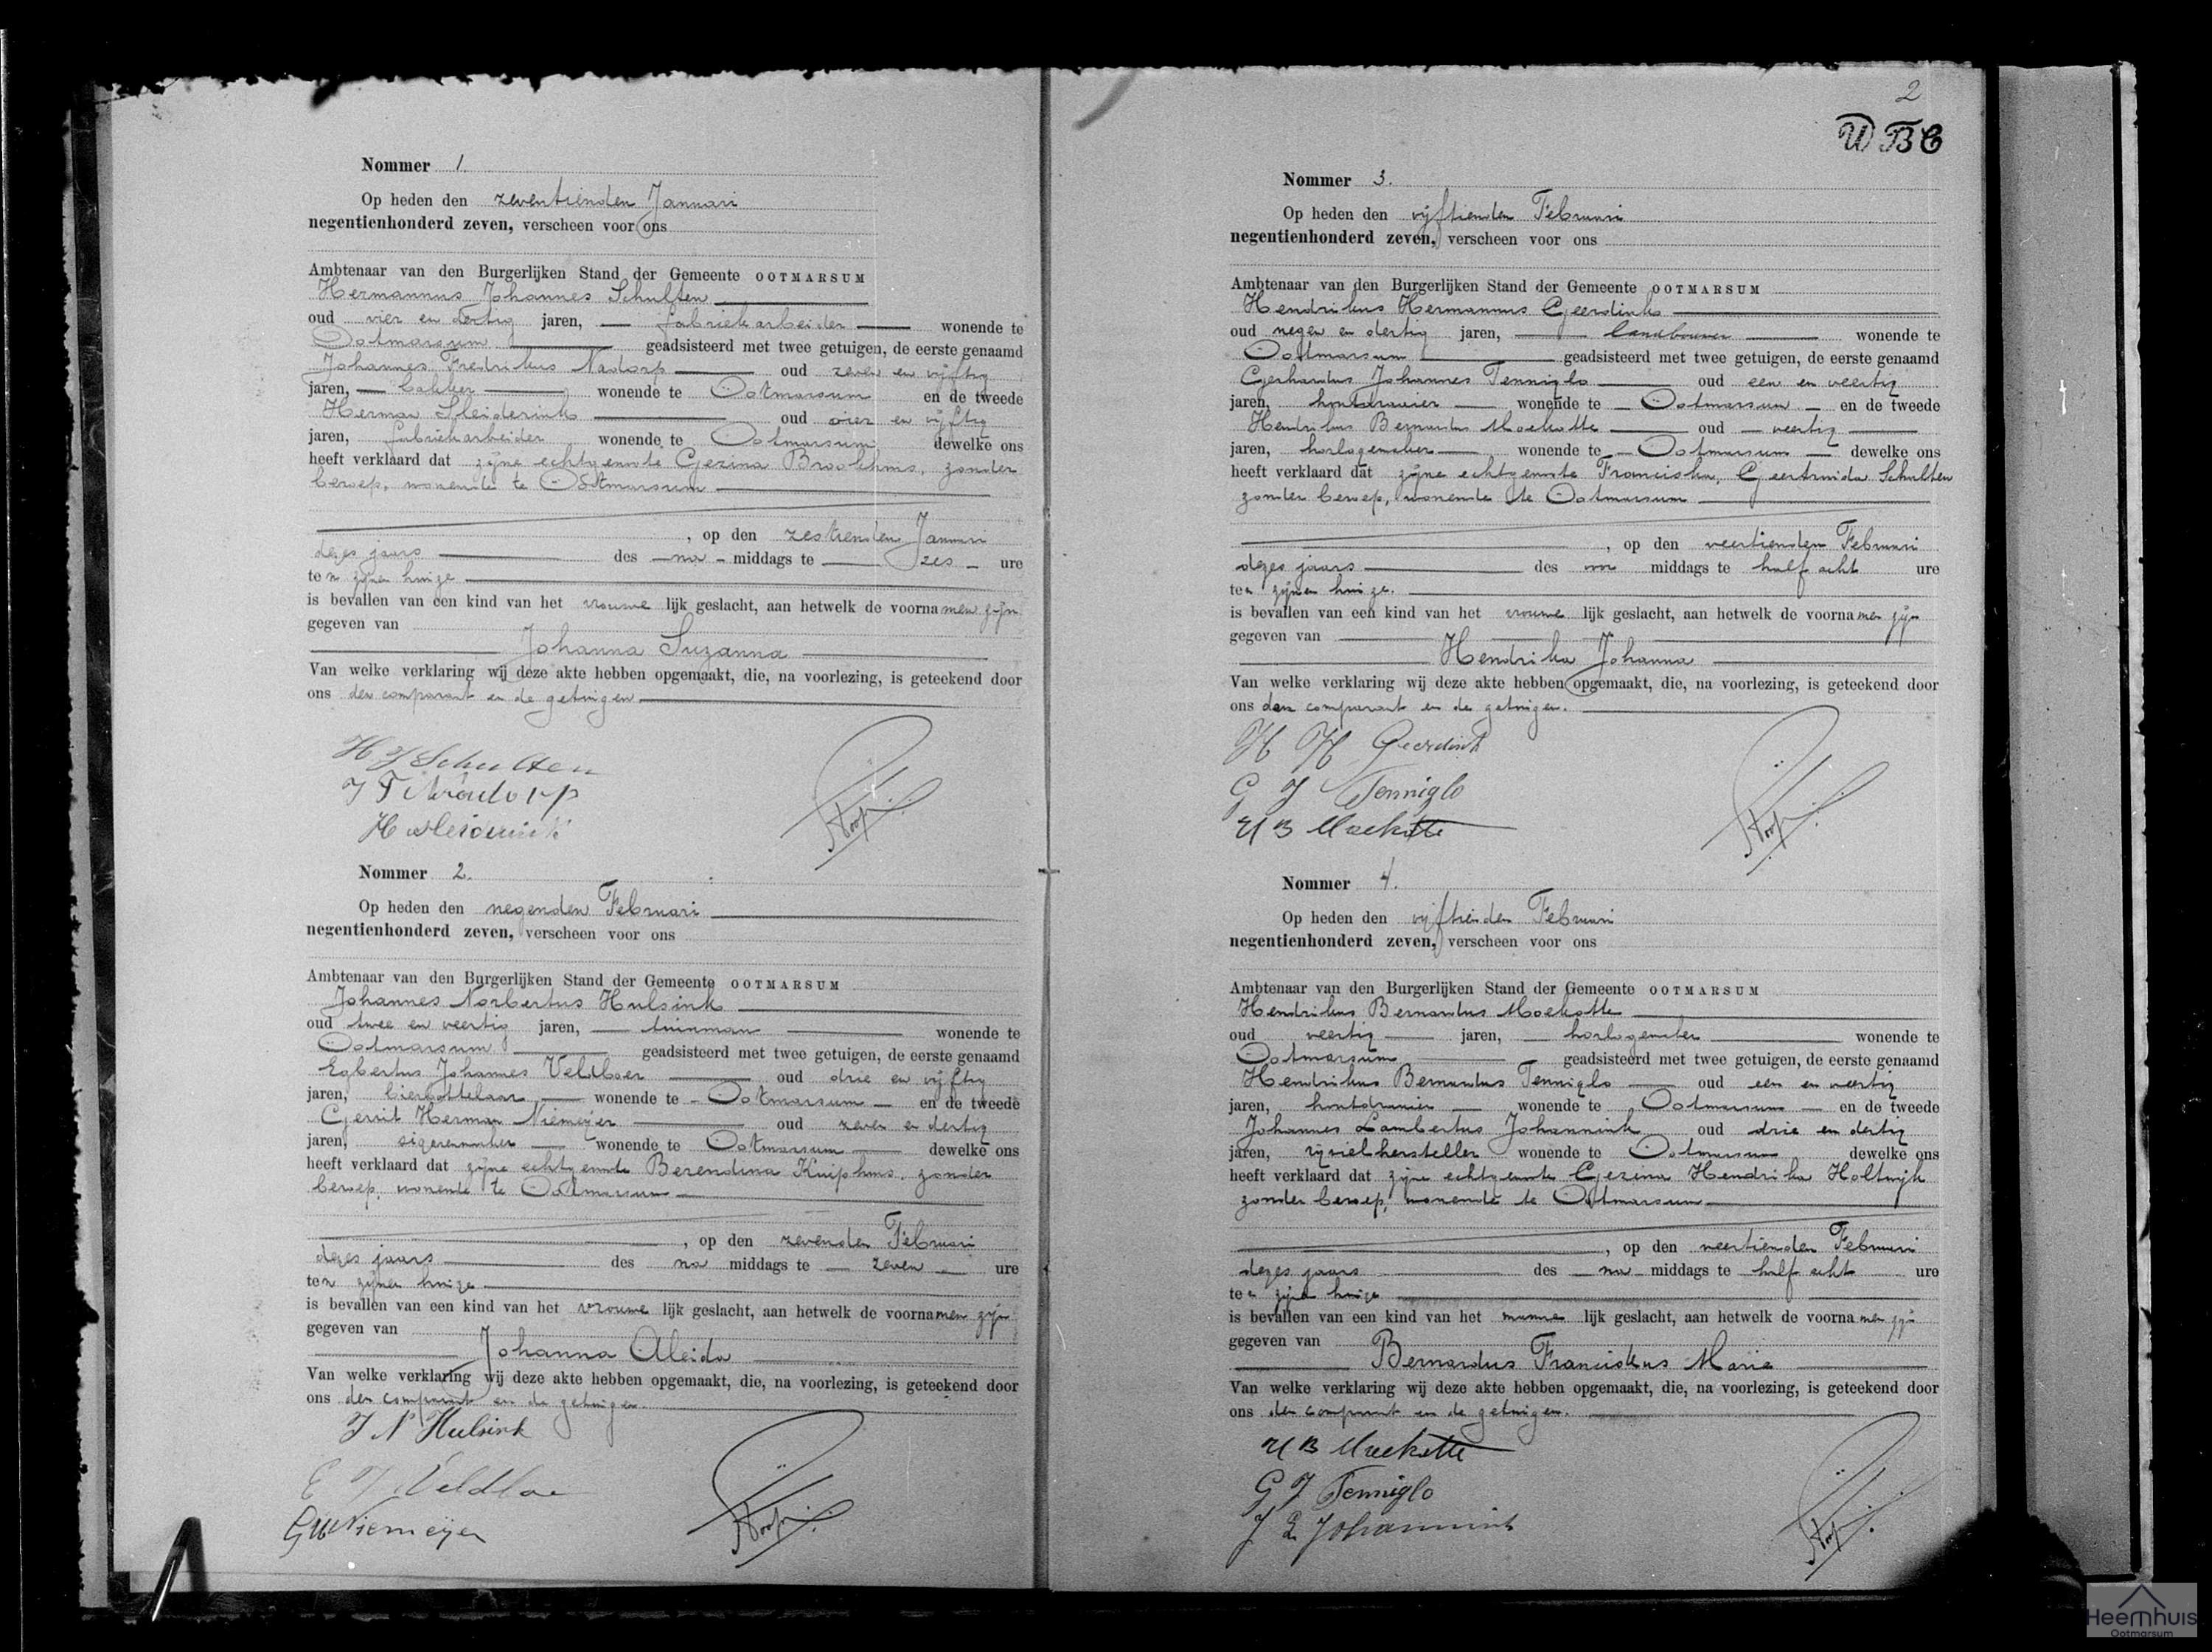 Nommer 1.
Op heden den zeventienden Januari
negentienhonderd zeven, verscheen voor ons
Ambtenaar van den Burgerlijken Stand der Gemeente OOTMARSUM
Hermannus Johannes Schulten
oud vier en dertig jaren, fabriekarbeider wonende te
Ootmarsum geadsisteerd met twee getuigen, de eerste genaamd
Johannes Fredrikus Nadorp oud zeven en vijftig
jaren, bakker wonende te Ootmarsum en de tweede
Herman Sleiderink oud vier en vijftig
jaren, fabriekarbeider wonende te Ootmarsum dewelke ons
heeft verklaard dat zijne echtgenoote Gezina Brookhuis, zonder
beroep, wonende te Ootmarsum
, op den zestienden Januari
dezes jaars des na middags te zes ure
ten zijnen huize
is bevallen van een kind van het vrouwe lijk geslacht, aan hetwelk de voornamen zijn
gegeven van
Johanna Suzanna
Van welke verklaring wij deze akte hebben opgemaakt, die, na voorlezing, is geteekend door
ons den comparant en de getuigen
H J Schulten
J F Nadorp
H Sleiderink
Nommer 2.
Op heden den negenden Februari
negentienhonderd zeven, verscheen voor ons
Ambtenaar van den Burgerlijken Stand der Gemeente OOTMARSUM
Johannes Norbertus Hulsink
oud twee en veertig jaren, tuinman wonende te
Ootmarsum geadsisteerd met twee getuigen, de eerste genaamd
Egbertus Johannes Veldboer oud drie en vijftig
jaren, bierbottelaar wonende te Ootmarsum en de tweede
Gerrit Herman Niemeijer oud zeven en dertig
jaren, sigarenmaker wonende te Ootmarsum dewelke ons
heeft verklaard dat zijne echtgenoote Berendina Kuiphuis, zonder
beroep, wonende te Ootmarsum
, op den zevenden Februari
dezes jaars des na middags te zeven ure
ten zijnen huize
is bevallen van een kind van het vrouwe lijk geslacht, aan hetwelk de voornamen zijn
gegeven van
Johanna Aleida
Van welke verklaring wij deze akte hebben opgemaakt, die, na voorlezing, is geteekend door
ons den comparant en de getuigen.
J N Hulsink
E J Veldboer
GH Niemeijer
2
Nommer 3.
Op heden den vijftienden Februari
negentienhonderd zeven, verscheen voor ons
Ambtenaar van den Burgerlijken Stand der Gemeente OOTMARSUM
Hendrikus Hermannus Geerdink
oud negen en dertig jaren, landbouwer wonende te
Ootmarsum geadsisteerd met twee getuigen, de eerste genaamd
Gerhardus Johannes Tenniglo oud een en veertig
jaren, houtdraaier wonende te Ootmarsum en de tweede
Hendrikus Bernardus Moekotte oud veertig
jaren, horlogemaker wonende te Ootmarsum dewelke ons
heeft verklaard dat zijne echtgenoote Franciska, Geertruida Schulten
zonder beroep, wonende te Ootmarsum
, op den veertienden Februari
dezes jaars des voor middags te half acht ure
ten zijnen huize.
is bevallen van een kind van het vrouwe lijk geslacht, aan hetwelk de voornamen zijn
gegeven van
Hendrika Johanna
Van welke verklaring wij deze akte hebben opgemaakt, die, na voorlezing, is geteekend door
ons den comparant en de getuigen.
H H Geerdink
G J Tenniglo
H B Moekotte
Nommer 4.
Op heden den vijftienden Februari
negentienhonderd zeven, verscheen voor ons
Ambtenaar van den Burgerlijken Stand der Gemeente OOTMARSUM
Hendrikus Bernardus Moekotte
oud veertig jaren, horlogemaker wonende te
Ootmarsum geadsisteerd met twee getuigen, de eerste genaamd
Hendrikus Bernardus Tenniglo oud een en veertig
jaren, houtdraaier wonende te Ootmarsum en de tweede
Johannes Lambertus Johannink oud drie en dertig
jaren, rijwielhersteller wonende te Ootmarsum dewelke ons
heeft verklaard dat zijne echtgenoote Gezina Hendrika Holtwijk
zonder beroep, wonende te Ootmarsum
, op den veertienden Februari
dezes jaars des na middags te half acht ure
ten zijnen huize
is bevallen van een kind van het manne lijk geslacht, aan hetwelk de voornamen zijn
gegeven van
Bernardus Franciskus Maria
Van welke verklaring wij deze akte hebben opgemaakt, die, na voorlezing, is geteekend door
ons den comparant en de getuigen.
H B Moekotte
G J Tenniglo
J L Johannink
Heemhuis
Ootmarsum